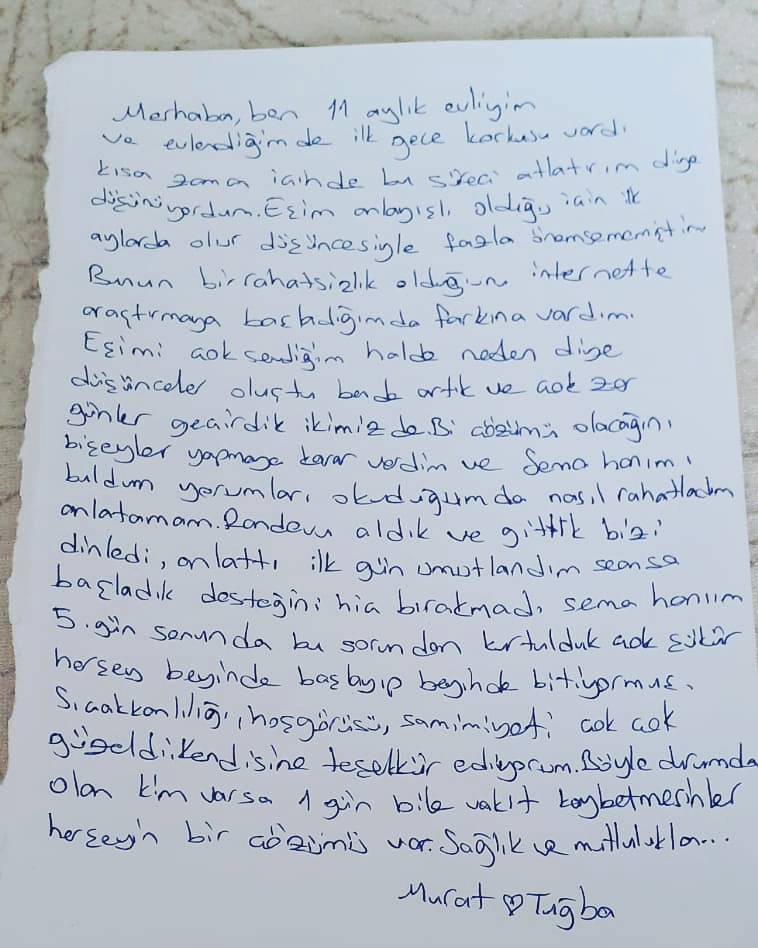 Merhaba, ben 11 aylık evliyim
ve evlendiğimde ilk gece korkusu vardı.
kısa zaman içinde bu süreci atlatırım diye
düşünüyordum. Eşim anlayışlı olduğu için ilk
aylarda olur düşüncesiyle fazla önemsememiştim
Bunun bir rahatsızlık olduğunu internette
araştırmaya başladığımda farkına vardım.
Eşimi çok sevdiğim halde neden diye
düşünceler oluştu bende artık ve çok zor
günler geçirdik ikimizde. Bi çözümü olacağını
bişeyler yapmaya karar verdim ve Sema hanımı
buldum yorumları okuduğumda nasıl rahatladım
anlatamam. Randevu aldık ve gittik bizi
dinledi, anlattı ilk gün umutlandım seansa
başladık desteğini hiç bırakmadı sema hanıım
5. gün sonunda bu sorundan kurtulduk çok şükür
herşey beyinde başlayıp beyinde bitiyormuş.
Sıcakkanlılığı, hoşgörüsü, samimiyeti çok çok
güzeldi. Kendisine teşekkür ediyorum. Böyle durumda
olan kim varsa 1 gün bile vakit kaybetmesinler
herşeyin bir çözümü var. Sağlık ve mutlulukla...
Murat ♡ Tuğba